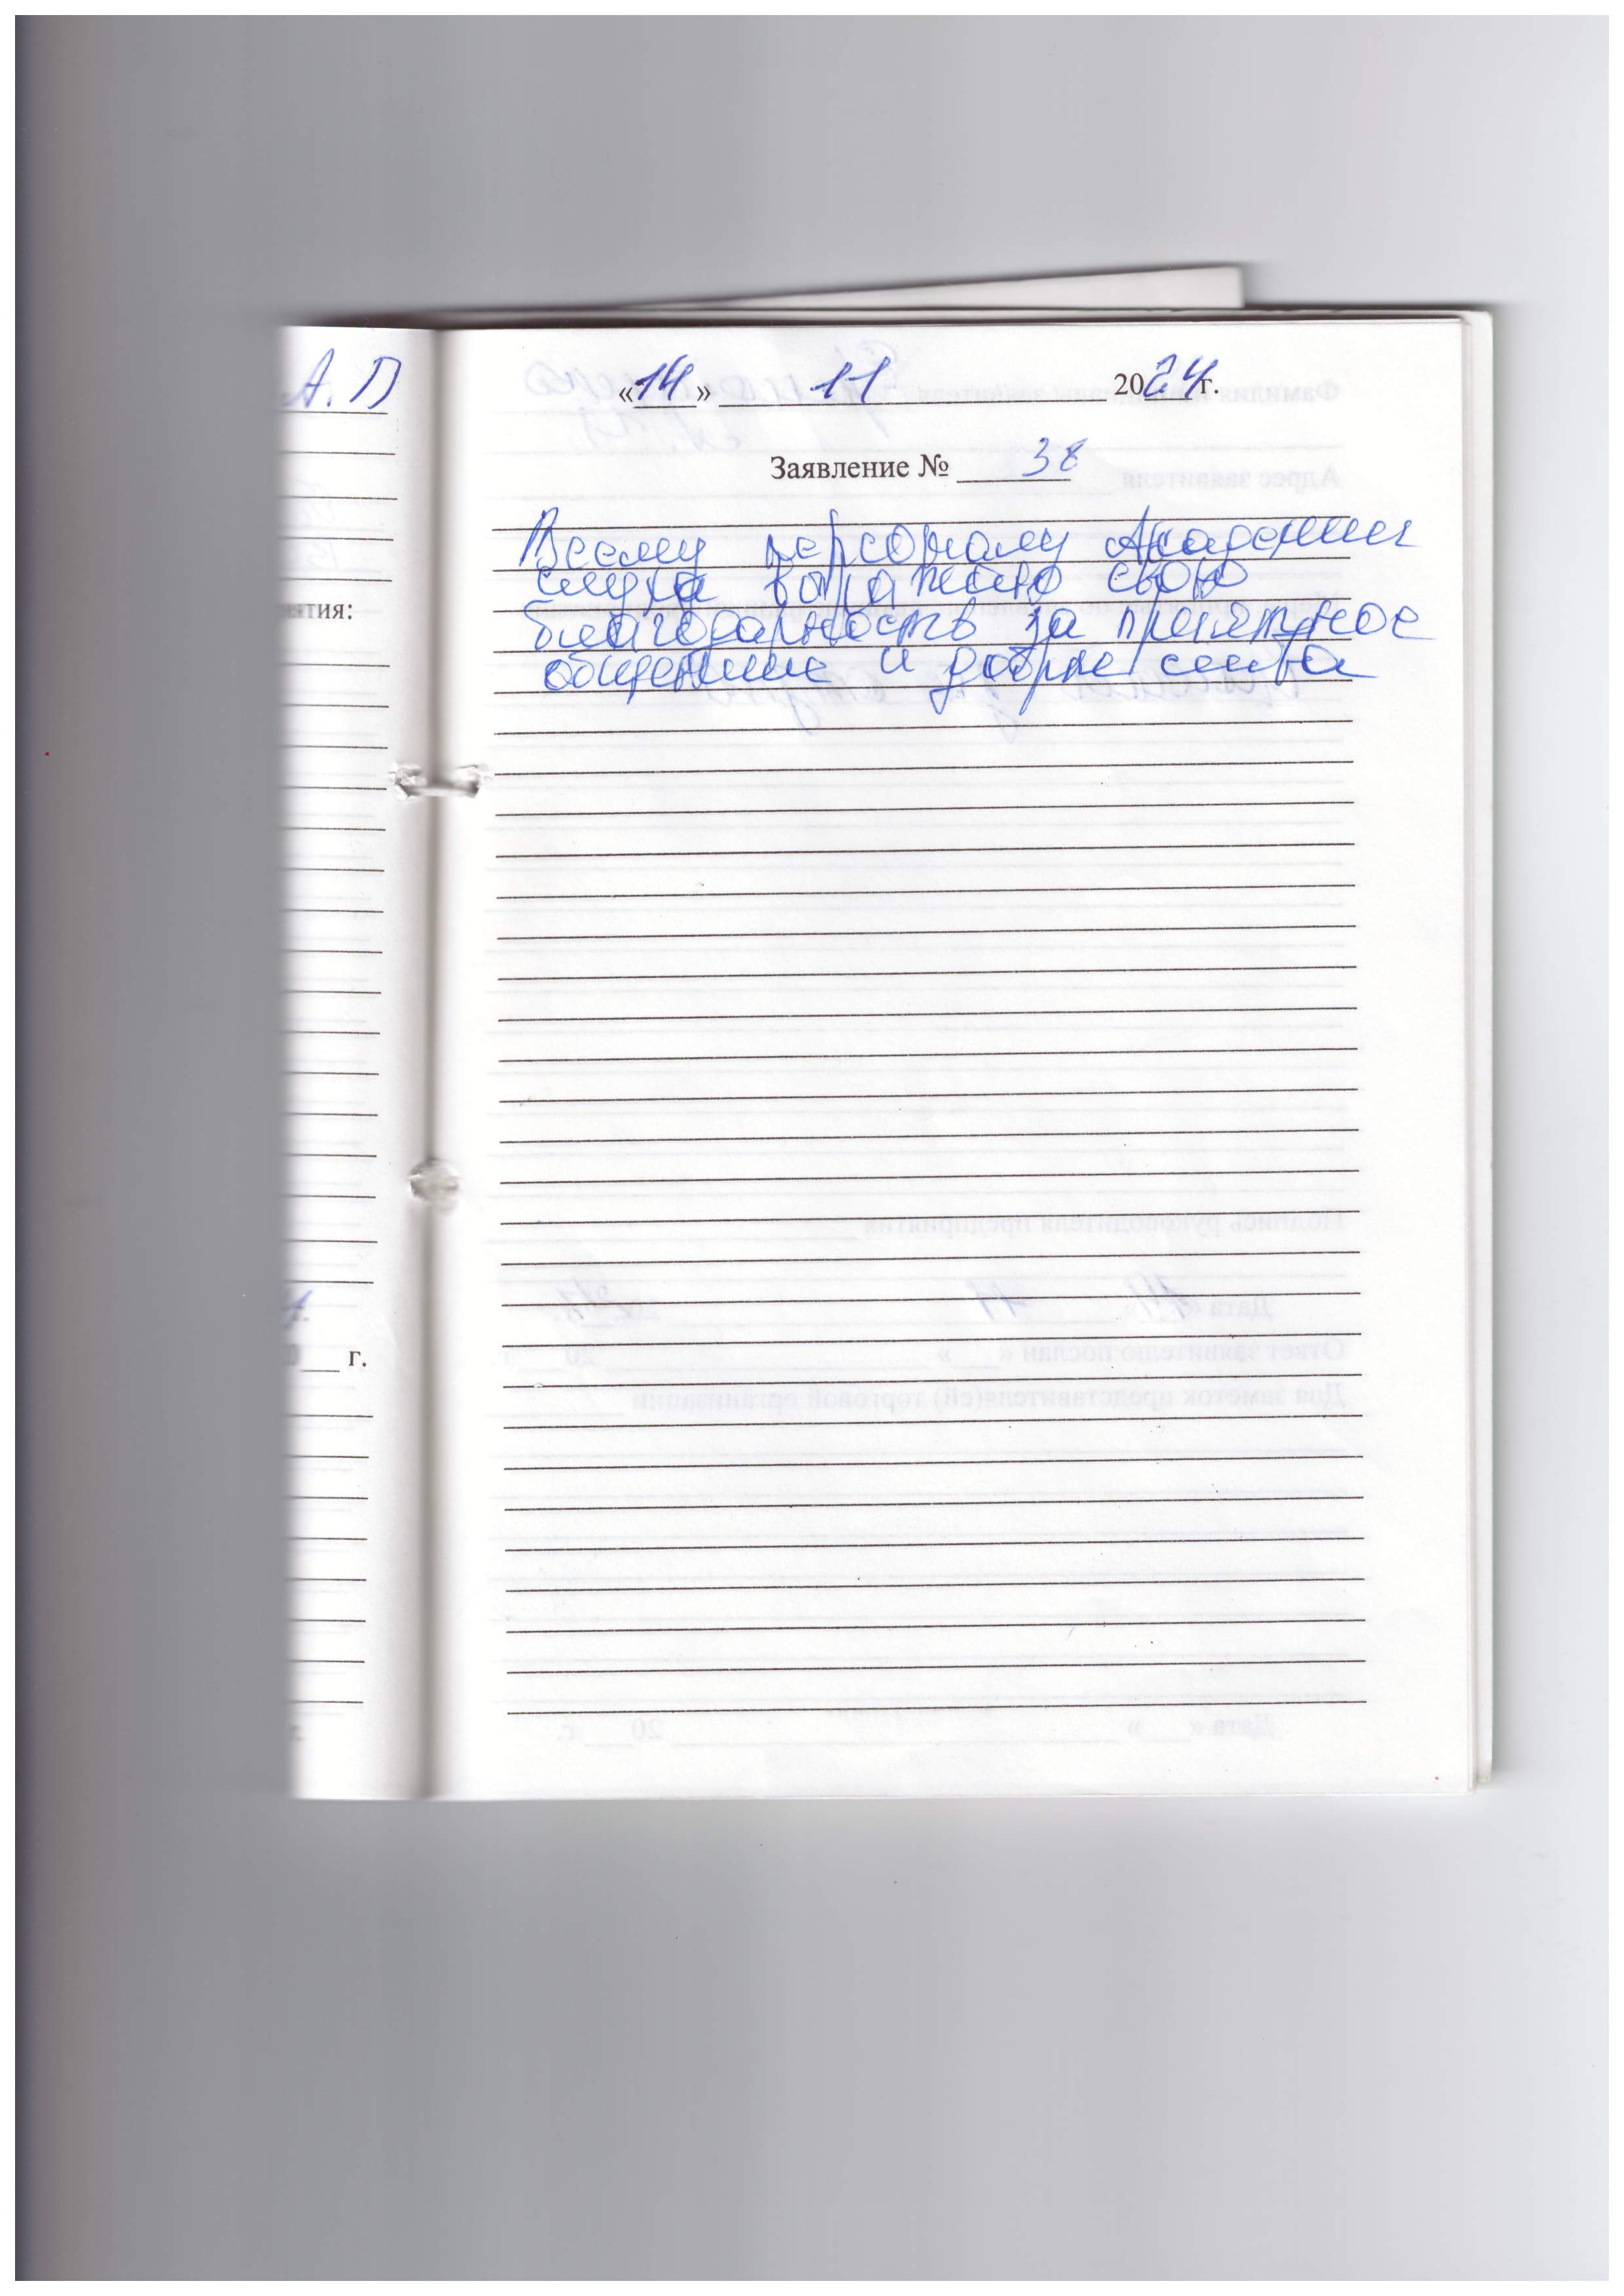 А. П
«14» 11 2024г.
Заявление № 38
Всему персоналу Академии
слуха выражаю свою
благодарность за приятное
общение и добрые слова
ятия:
г.